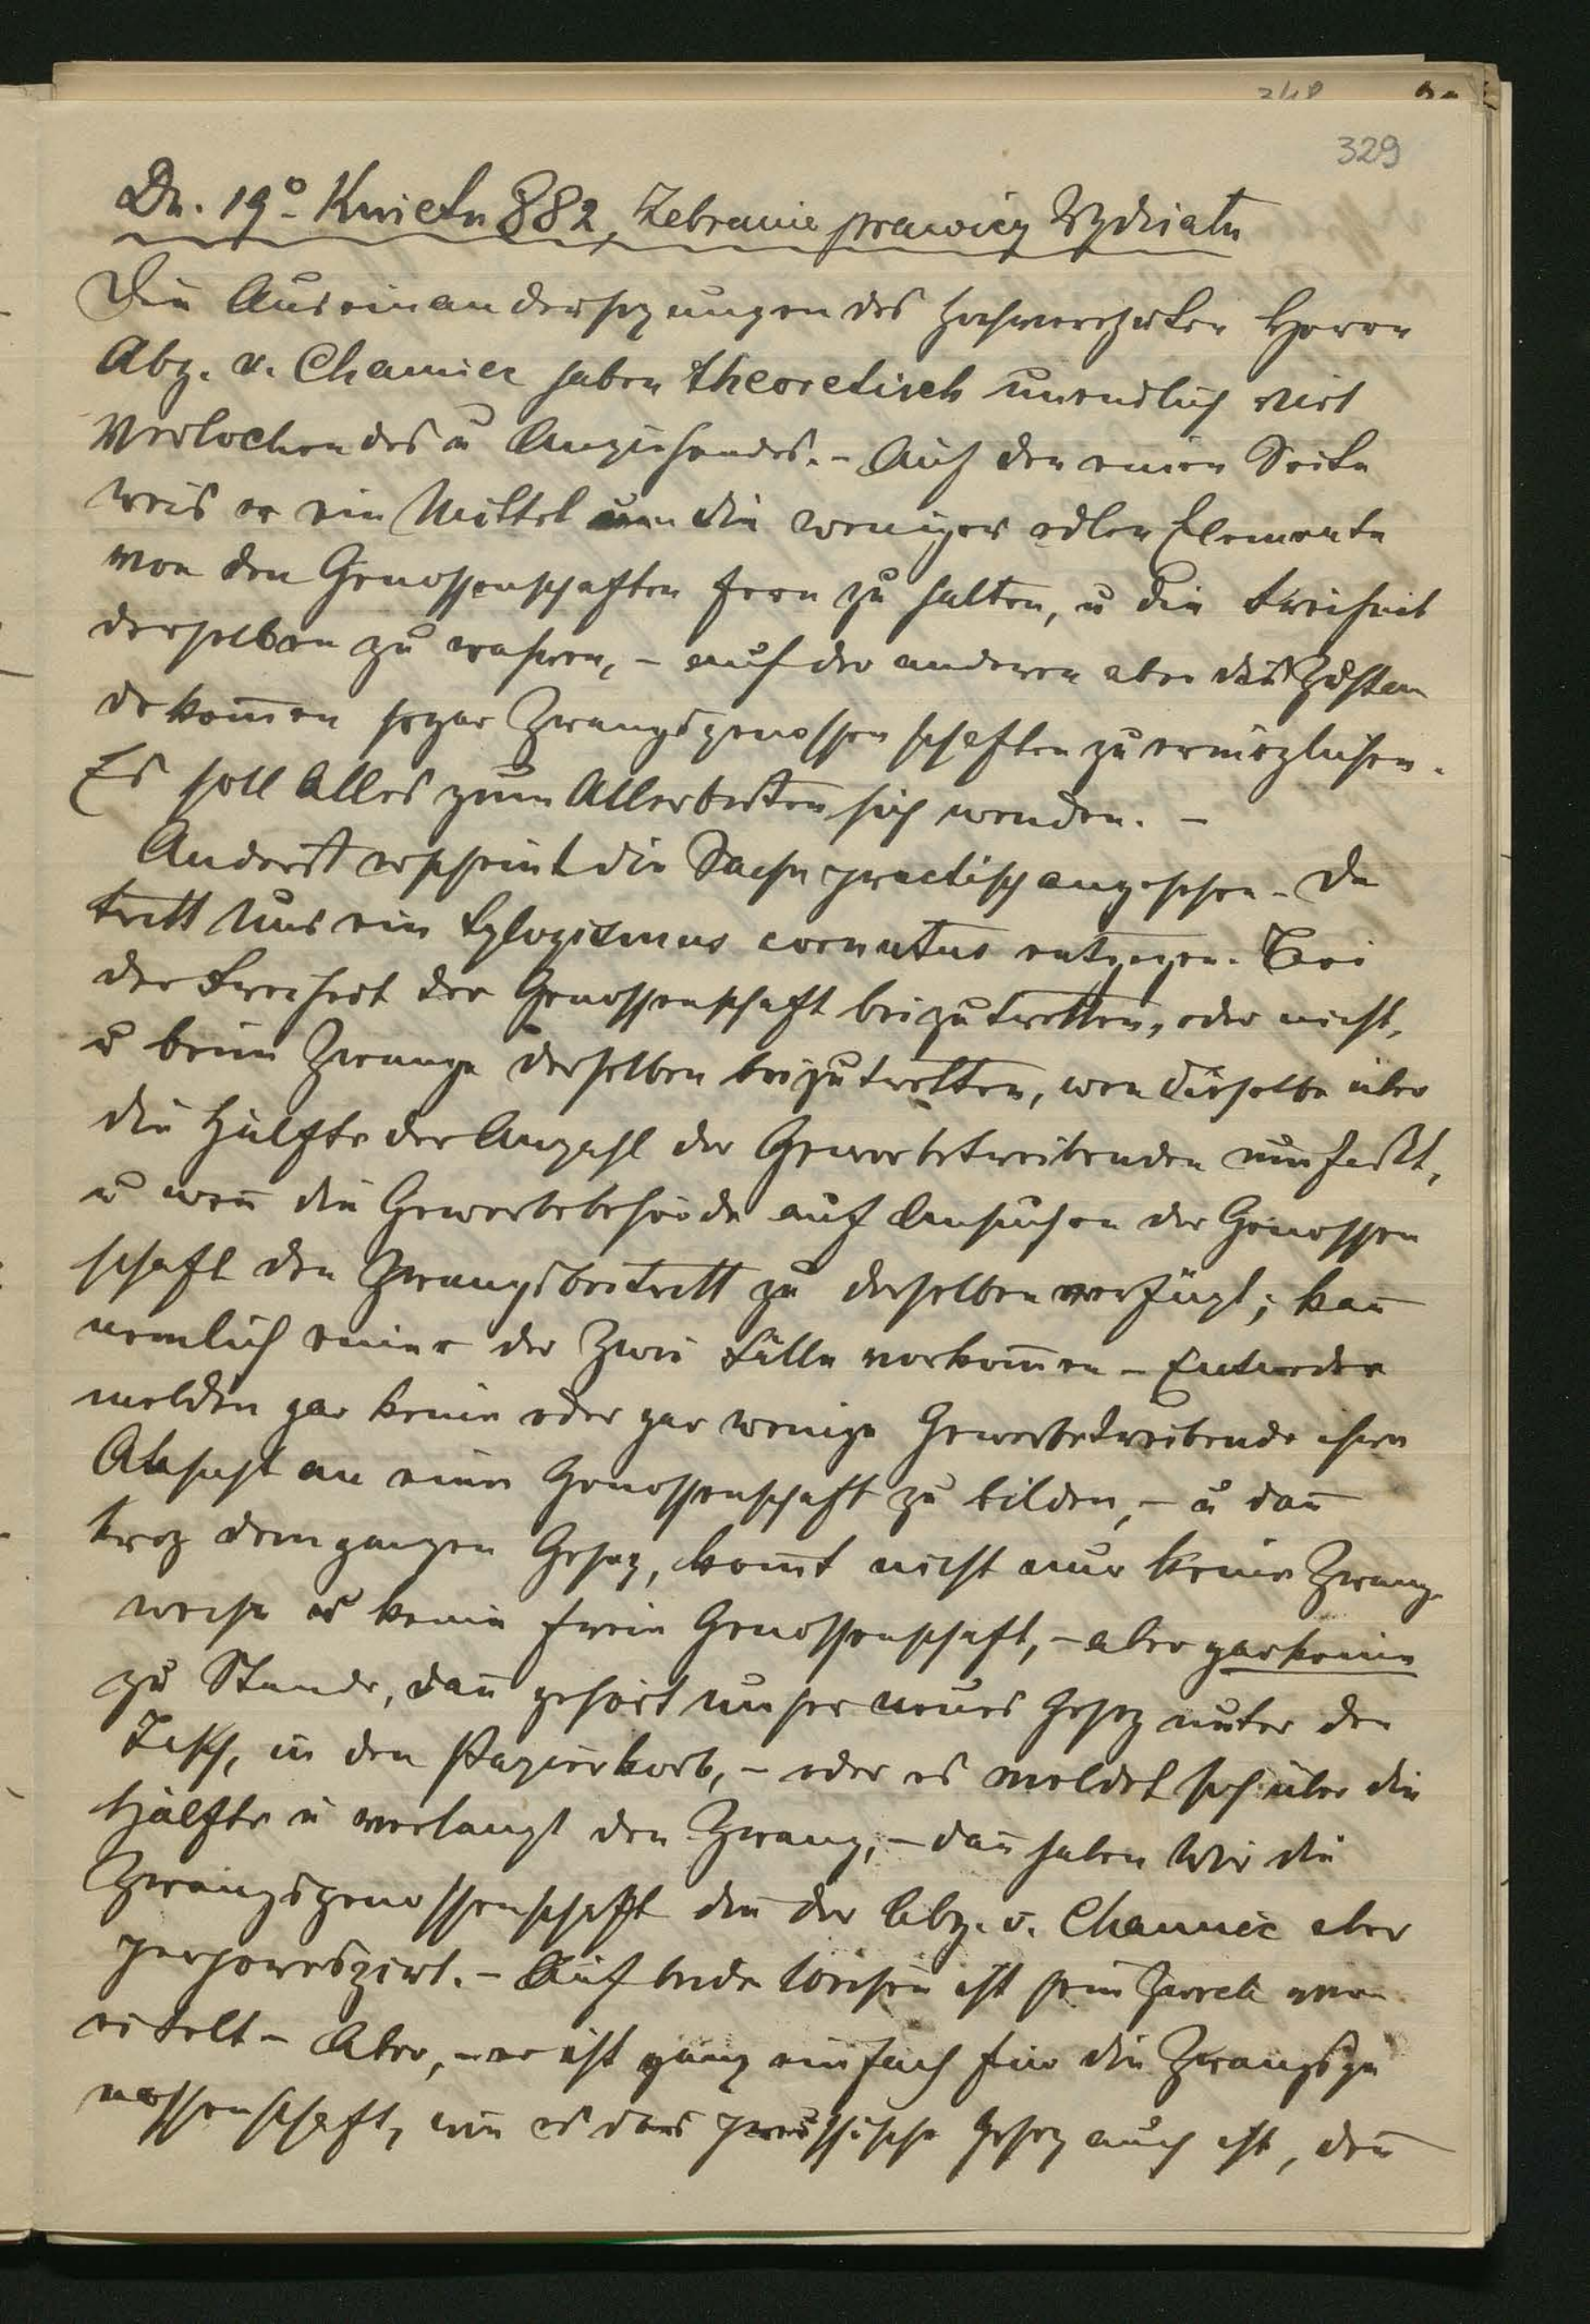 329
Dn. 19º Kwietn 882, Zebranie prawicy Wydziatu
Die Auseinandersezungen des hochverehrten Herrn
Abg. v. Chamiec haben theoretisch unendlich viel
Verlockendes u Anziehendes. – Auf der einen Seite
weis er ein Mittel um die weniger edlen Elemente
von den Genossenschaften fern zu halten, u die Freiheit
derselben zu wahren, – auf der anderen aber das Zustan
dekom̄en sogar Zwangsgenossenschaften zu ermöglichen.
Es soll Alles zum Allerbesten sich wenden. –
Anderst erscheint die Sache practisch angesehen. Da
tritt Uns ein Sylogismus cornutus entgegen. Bei
der Freiheit der Genossenschaft beizutretten, oder nicht,
u beim Zwange derselben beizutretten, wen dieselbe über
die Hälfte der Anzahl der Gewerbetreibenden umfaßt,
u wen̄ die Gewerbebehörde auf Ansuchen der Genossen
schaft den Zwangsbeitritt zu derselben verfügt; kan̄
nemlich einer der Zwei Fälle vorkom̄en – Entweder
melden gar keine oder gar wenige Gewerbetreibende ihre
Absicht an eine Genossenschaft zu bilden, – u dan̄
troz dem ganzen Gesez, kom̄t nicht nur keine Zwangs
weise u keine freie Genossenschaft, – aber gar keine
zu Stande, dan̄ gehört unser neues Gesez unter den
Tisch, in den Papierkorb, – oder es meldet sich über die
Hälfte u verlangt den Zwang, – dan̄ haben Wir die
Zwangsgenossenschaft die der Abg. v. Chamiec aber
perhoreszirt. – Auf beide Weisen ist sein Zweck ver
eitelt – Aber, – er ist ganz einfach für die Zwangsge
nossenschaft, wie es das preussische Gesez auch ist, den̄